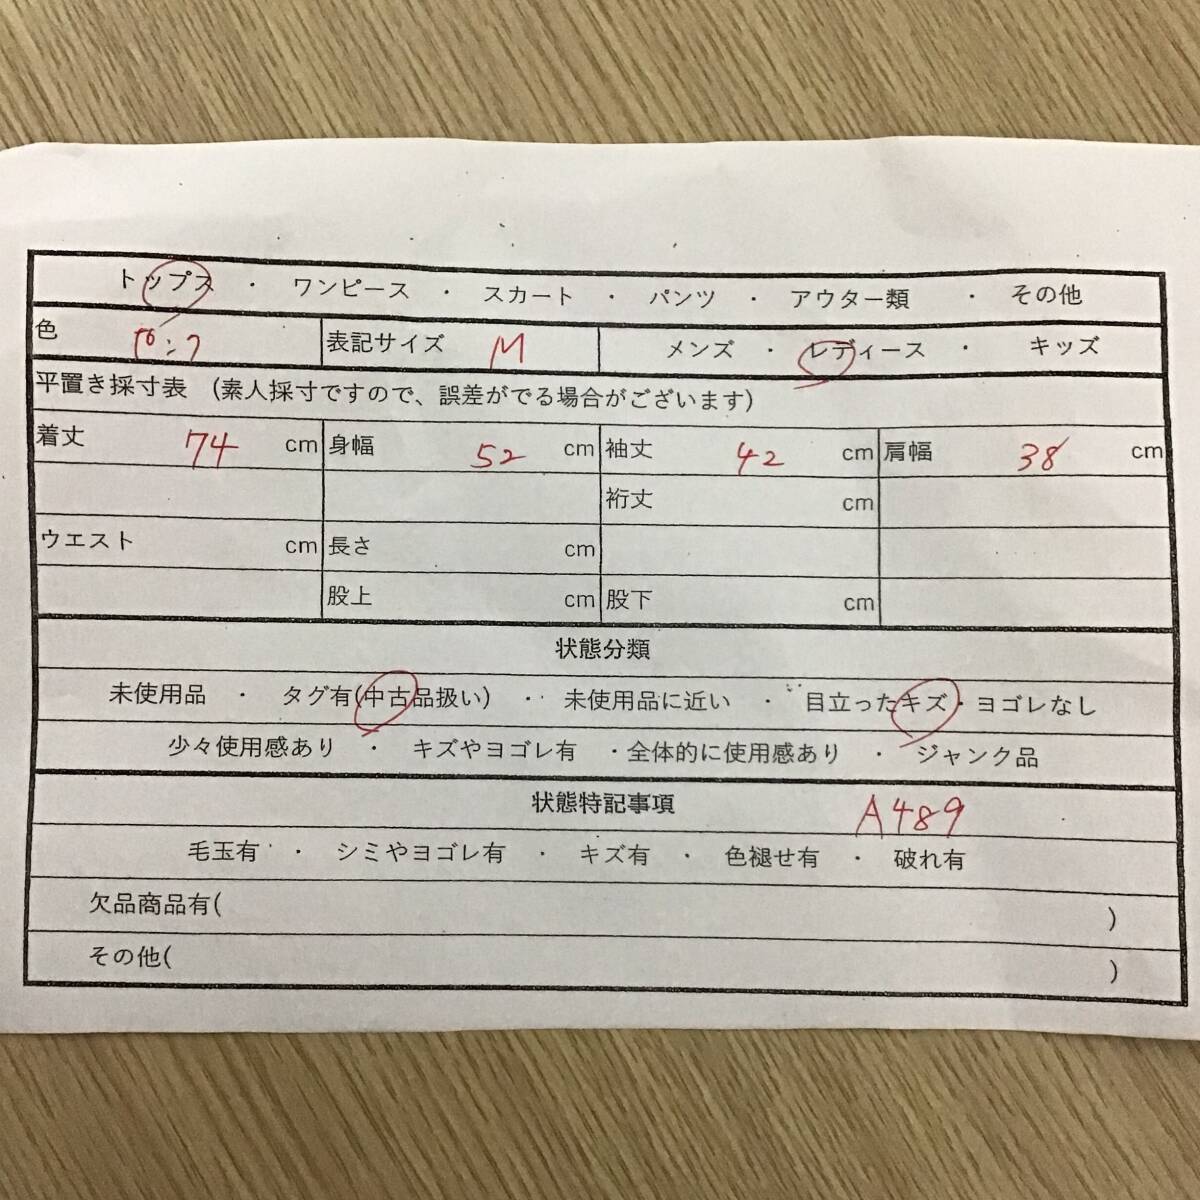 トップス ・ ワンピース ・ スカート ・ パンツ ・ アウター類 ・ その他
色 ピンク 表記サイズ M メンズ ・ レディース ・ キッズ
平置き採寸表 (素人採寸ですので、誤差がでる場合がございます)
着丈 74 cm 身幅 52 cm 袖丈 42 cm 肩幅 38 cm
裄丈 cm
ウエスト cm 長さ cm
股上 cm 股下 cm
状態分類
未使用品 ・ タグ有(中古品扱い) ・ 未使用品に近い ・ 目立ったキズ・ヨゴレなし
少々使用感あり ・ キズやヨゴレ有 ・全体的に使用感あり ・ ジャンク品
状態特記事項 A489
毛玉有 ・ シミやヨゴレ有 ・ キズ有 ・ 色褪せ有 ・ 破れ有
欠品商品有( )
その他( )